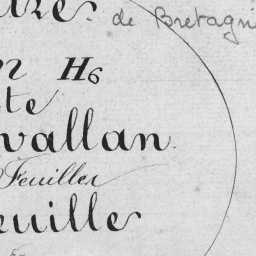 de Bretagn
H6
te
vallan.
Feuilles
euille